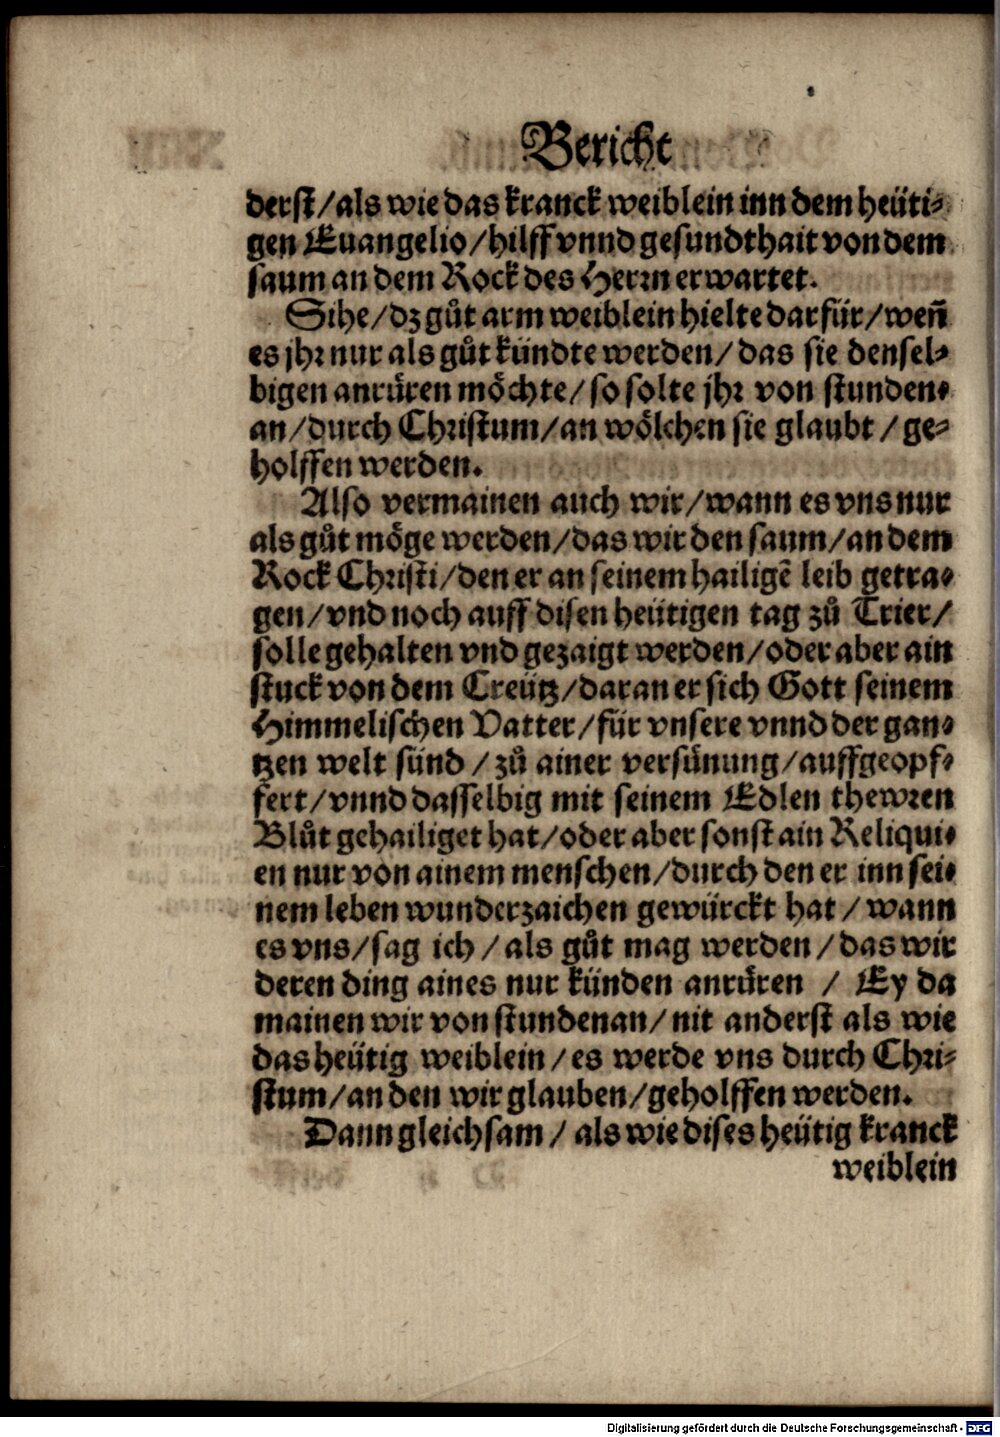 Bericht
derst/als wie das kranck weiblein inn dem heüti⸗
gen Euangelio/hilff vnnd gesundthait von dem
saum an dem Rock des Herrn erwartet.
Sihe/dz gůt arm weiblein hielte darfür/weñ
es jhr nur als gůt kündte werden/das sie densel⸗
bigen anrůren möchte/so solte jhr von stunden⸗
an/durch Christum/an wölchen sie glaubt/ge⸗
holffen werden.
Also vermainen auch wir/wann es vns nur
als gůt möge werden/das wir den saum/an dem
Rock Christi/den er an seinem hailigẽ leib getra⸗
gen/vnd noch auff disen heütigen tag zů Trier/
solle gehalten vnd gezaigt werden/oder aber ain
stuck von dem Creütz/daran er sich Gott seinem
Himmelischen Vatter/für vnsere vnnd der gan⸗
tzen welt sünd/zů ainer versünung/auffgeopf⸗
fert/vnnd dasselbig mit seinem Edlen thewren
Blůt gehailiget hat/oder aber sonst ain Reliqui⸗
en nur von ainem menschen/durch den er inn sei⸗
nem leben wunderzaichen gewürckt hat/wann
es vns/sag ich/als gůt mag werden/das wir
deren ding aines nur künden anrůren/Ey da
mainen wir von stundenan/nit anderst als wie
das heütig weiblein/es werde vns durch Chri⸗
stum/an den wir glauben/geholffen werden.
Dann gleichsam/als wie dises heütig kranck
weiblein
Digitalisierung gefördert durch die Deutsche Forschungsgemeinschaft - DFG